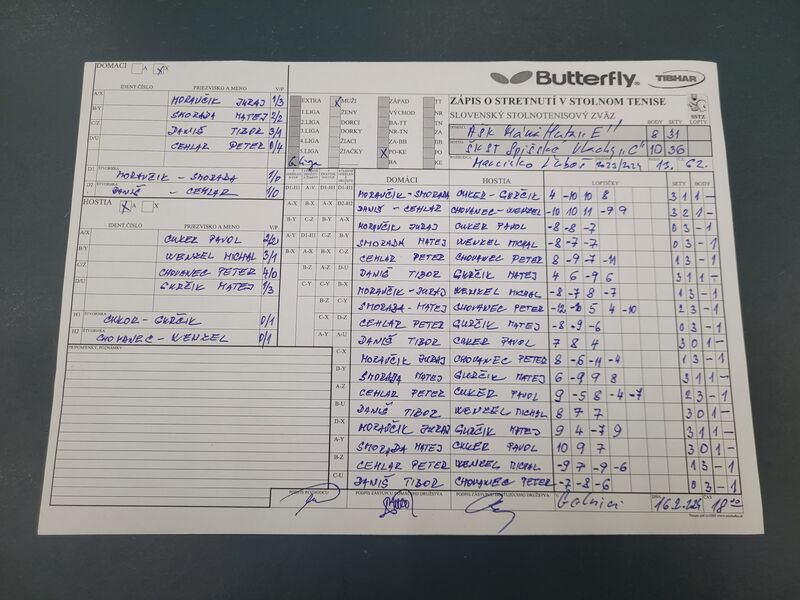 DOMÁCI A X
IDENT.ČÍSLO PRIEZVISKO A MENO V/P
A/X MORAVČIK JURAJ 1/3
B/Y SMORADA MATEJ 2/2
C/Z DANIŠ TIBOR 3/1
D/U CEHLAR PETER 0/4
D1 ŠTVORHRA MORAVČIK - SMORADA 1/0
D2 DANIŠ - CEHLAR 1/0
HOSTIA A X
IDENT.ČÍSLO PRIEZVISKO A MENO V/P
A/X CUKER PAVOL 2/2
B/Y WENZEL MICHAL 3/1
C/Z CHOVANEC PETER 4/0
D/U GURČIK MATEJ 1/3
H1 ŠTVORHRA CUKOR - GURČIK 0/1
H2 CHOVANEC - WENZEL 0/1
PRIPOMIENKY, POZNÁMKY
EXTRA MUŽI ZÁPAD TT
1.LIGA ŽENY VÝCHOD NR
2.LIGA DORCI BA-TT TN
3.LIGA DORKY NR-TN ZA
4.LIGA ŽIACI ZA-BB BB
5.LIGA ŽIAČKY PO-KE PO
6. liga BA KE
Butterfly TIBHAR
ZÁPIS O STRETNUTÍ V STOLNOM TENISE
SLOVENSKÝ STOLNOTENISOVÝ ZVÄZ
SSTZ
BODY SETY LOPTY
8 31
ŠKST Spišské Vlachy "C" 10 36
2023/2024 62.
DOMÁCI HOSTIA LOPTIČKY SETY BODY
MORAVČIK - SMORADA CUKER - GURČIK 4 -10 10 8 3 1 1 -
DANIŠ - CEHLAR CHOVANEC - WENZEL -10 10 11 -9 9 3 2 1 -
MORAVČIK JURAJ CUKER PAVOL -8 -8 -7 0 3 - 1
SMORADA MATEJ WENZEL MICHAL -8 -7 -7 0 3 - 1
CEHLAR PETER CHOVANEC PETER 8 -9 -7 -11 1 3 - 1
DANIŠ TIBOR GURČIK MATEJ 4 6 -9 6 3 1 1 -
MORAVČIK - JURAJ WENZEL MICHAL -8 -7 8 -7 1 3 - 1
SMORADA - MATEJ CHOVANEC PETER 5 4 -10 2 3 - 1
CEHLAR PETER GURČIK MATEJ -8 -9 -6 0 3 - 1
DANIŠ TIBOR CUKER PAVOL 7 8 4 3 0 1 -
MORAVČIK JURAJ CHOVANEC PETER 8 -6 -11 -4 1 3 - 1
SMORADA MATEJ GURČIK MATEJ 6 -9 9 8 3 1 1 -
CEHLAR PETER CUKER PAVOL 9 -5 8 -4 -7 2 3 - 1
DANIŠ TIBOR WENZEL MICHAL 8 7 7 3 0 1 -
MORAVČIK JURAJ GURČIK MATEJ 9 4 -7 9 3 1 1 -
SMORADA MATEJ CUKER PAVOL 10 9 7 3 0 1 -
CEHLAR PETER WENZEL MICHAL -9 7 -9 -6 1 3 - 1
DANIŠ TIBOR CHOVANEC PETER -7 -8 -6 0 3 - 1
PODPIS ROZHODCU PODPIS ZÁSTUPCU DOMÁCEHO DRUŽSTVA PODPIS ZÁSTUPCU HOSŤUJÚCEHO DRUŽSTVA ČAS